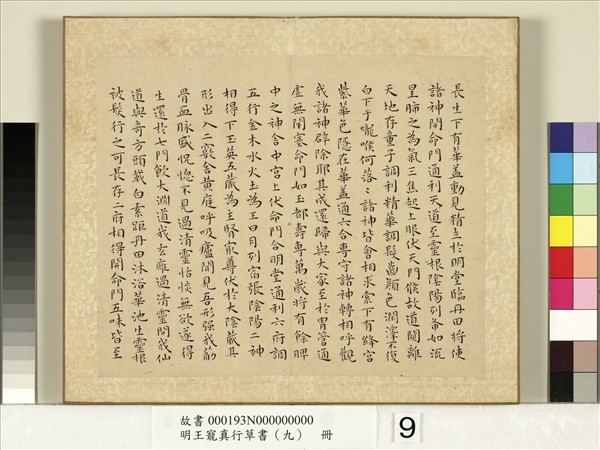 長生下有華蓋動見精立於明堂臨丹田將使
諸神開命門通利天道至靈根陰陽列布如流
星肺之為氣三焦起上服伏天門候故道闚離
天地存童子調利精華調髮齒顏色潤澤不復
白下于嚨喉何落〻諸神皆會相求索下有絳宮
紫華色隱在華蓋通六合專守諸神轉相呼觀
我諸神辟除耶其成還歸與大家至於胃管通
虛無閉塞命門如玉都壽專萬歲將有餘脾
中之神舍中宮上伏命門合明堂通利六府調
五行金木水火土為王日月列宿張陰陽二神
相得下玉英五藏為主腎最尊伏於大陰藏其
形出入二竅舍黃庭呼吸廬間見吾形強我筋
骨血脉盛怳惚不見過清靈恬惔無欲遂得
生還於七門飲大淵道我玄雍過清靈問我仙
道與奇方頭載白素距丹田沐浴華池生靈根
被髮行之可長存二府相得開命門五味皆至
故書 000193N000000000
明王寵真行草書（九） 冊
9